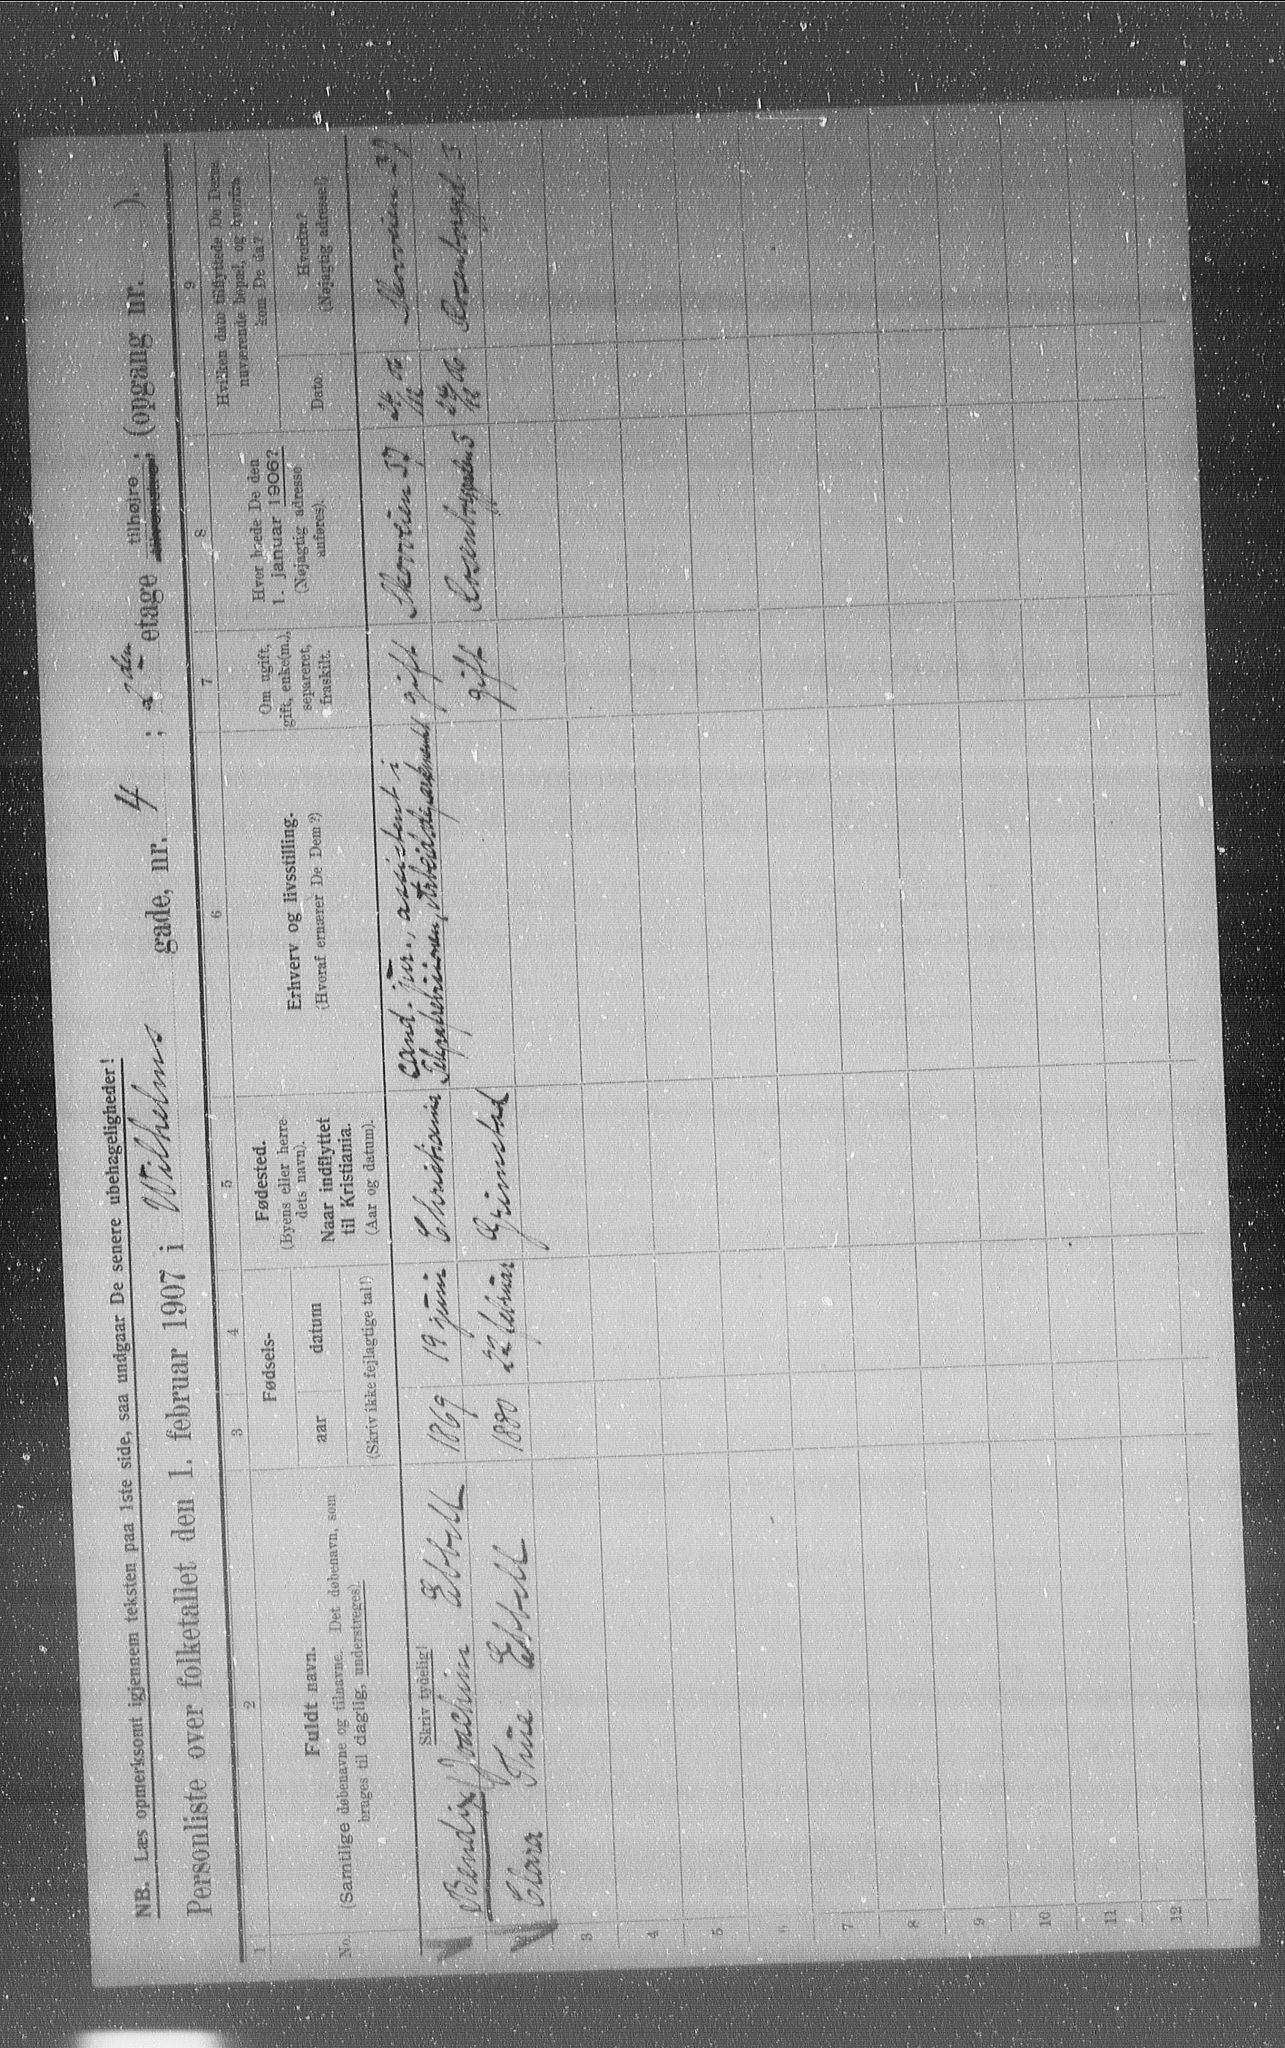 NB. Læs opmerksomt igjennem teksten paa 1ste side, saa undgaar De senere ubehageligheder!
Personliste over folketallet den 1. februar 1907 i Wilhelms gade, nr. 4 ; 2den etage tilhøjre, tilvenstre, (opgang nr. ).
1 2 3 4 5 6 7 8 9
No.
Fuldt navn.
(Samtlige døbenavne og tilnavne. Det døbenavn, som
bruges til daglig, understreges).
Fødsels-
aar datum
(Skriv ikke fejlagtige tal!)
Fødested.
(Byens eller herre-
dets navn).
Naar indflyttet
til Kristiania.
(Aar og datum).
Erhverv og livsstilling.
(Hvoraf ernærer De Dem?)
Om ugift,
gift, enke(m.),
separeret,
fraskilt.
Hvor boede De den
1. januar 1906?
(Nøjagtig adresse
anføres).
Hvilken dato tilflyttede De Deres
nuværende bopæl, og hvorfra
kom De da?
Dato.
Hvorfra?
(Nøjagtig adresse!)
Skriv tydelig!
Bendix Joachim Ebbell 1869 19 juni Christiania cand. jur., assistent i
Telegrafrevisionen, Arbeidsdepartementet gift Skovveien 37 24/11 06 Skovveien 37
Clara Thue Ebbell 1880 22 februar Grimstad gift Rosenborggaden 5 24/11 06 Rosenborggd. 5
3
4
5
6
7
8
9
10
11
12